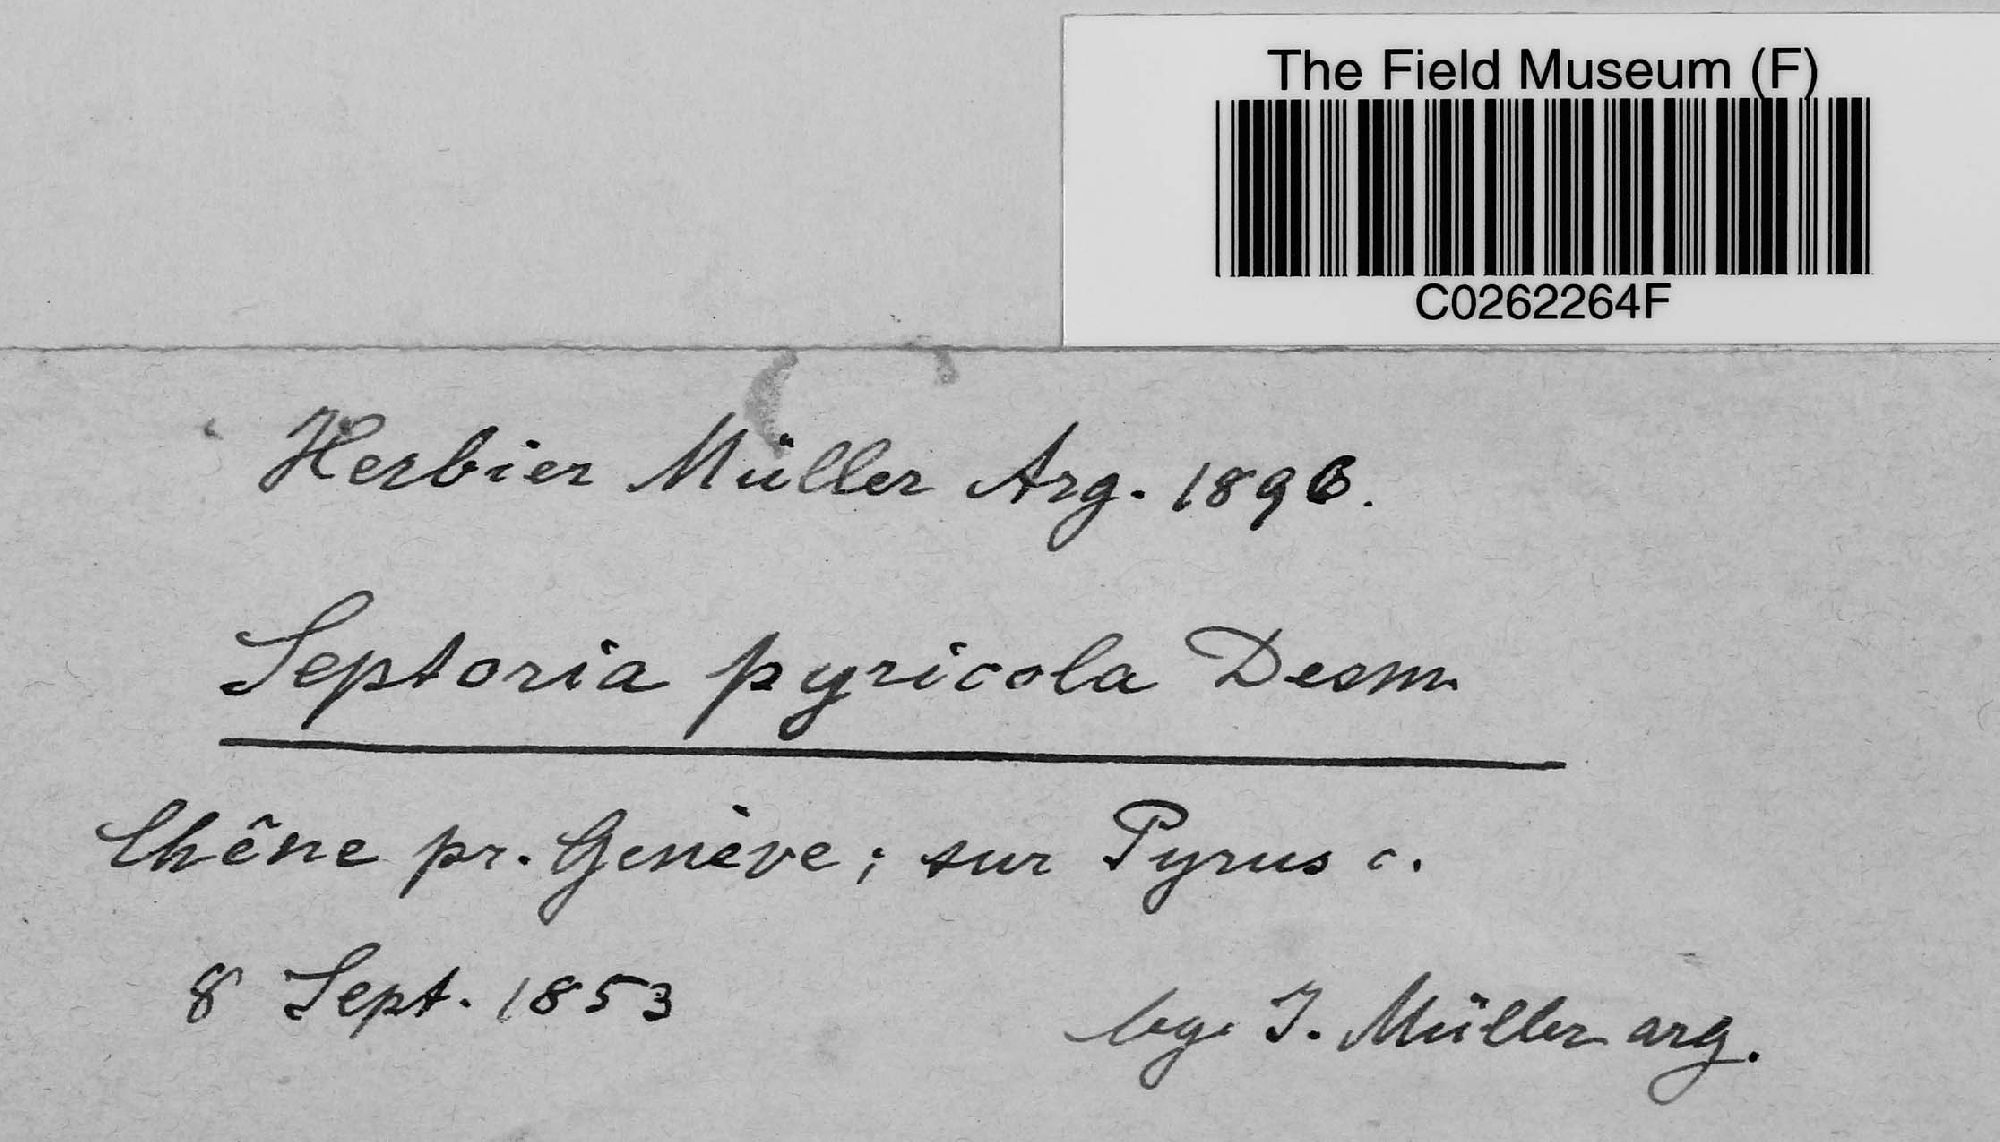 The Field Museum (F)
C0262264F
Herbier Müller Arg. 1896.
Septoria pyricola Desm.
Chêne pr. Genève; sur Pyrus c.
8 Sept. 1853
leg. J. Müller arg.